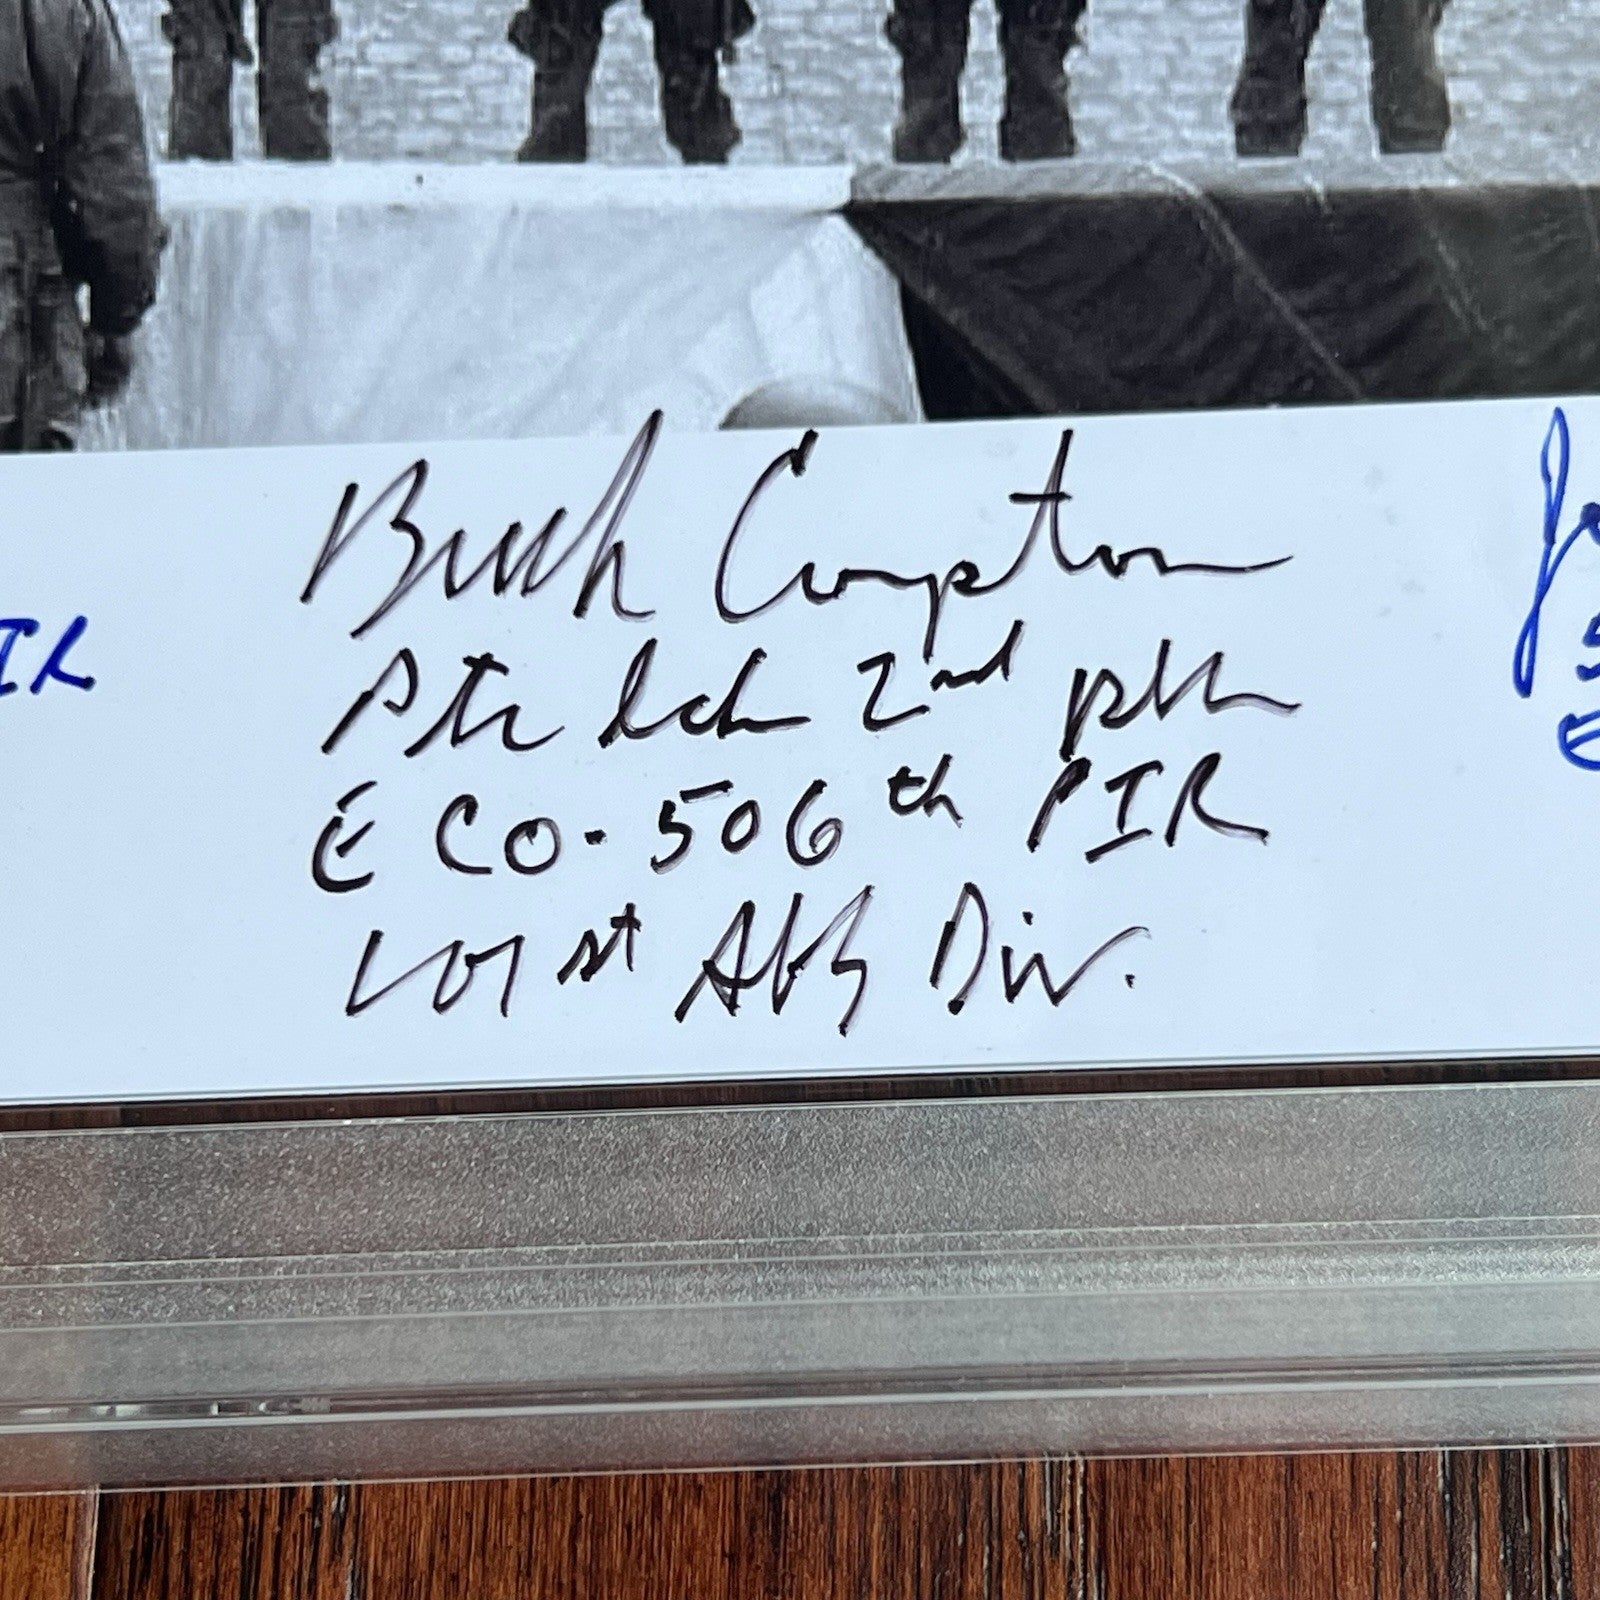 Buck Compton
Ptr Ldr 2nd pltn
E CO. 506th PIR
101st Ab Div.
IR